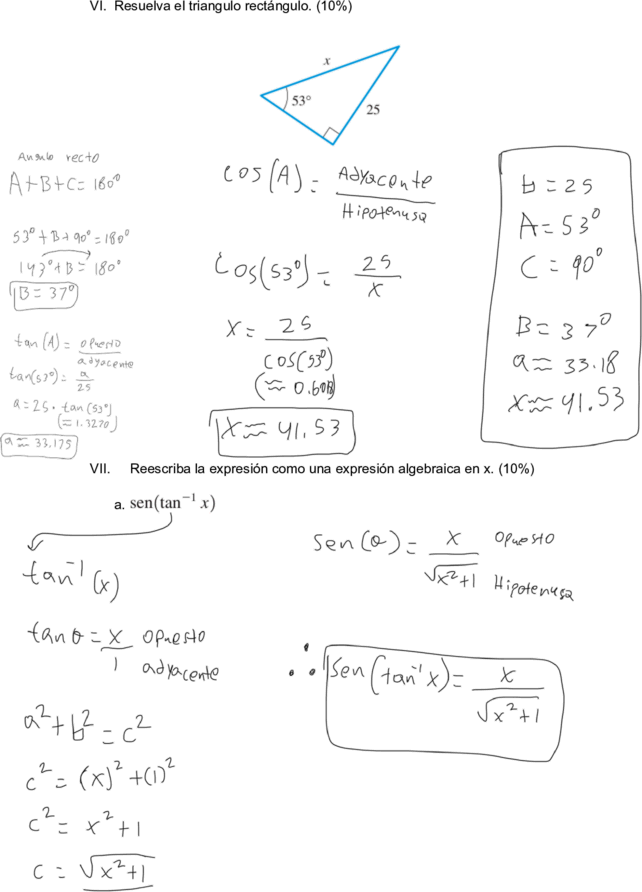 VI. Resuelva el triangulo rectángulo. (10%)
x
53°
25
Angulo recto
A+B+C=180°
53°+B+90°=180°
143°+B=180°
B=37°
tan(A)= opuesto / adyacente
tan(53°)= a / 25
a=25·tan(53°)
(≈1.3270)
a≈33.175
cos(A)= Adyacente / Hipotenusa
cos(53°)= 25 / x
x= 25 / cos(53°)
(≈0.6018)
x≈41.53
b=25
A=53°
C=90°
B=37°
a≈33.18
x≈41.53
VII. Reescriba la expresión como una expresión algebraica en x. (10%)
a. sen(tan⁻¹ x)
tan⁻¹(x)
tanθ= x / 1 opuesto / adyacente
a²+b²=c²
c²=(x)²+(1)²
c²=x²+1
c=√x²+1
Sen(θ)= x / √x²+1 opuesto / Hipotenusa
∴ Sen(tan⁻¹x)= x / √x²+1